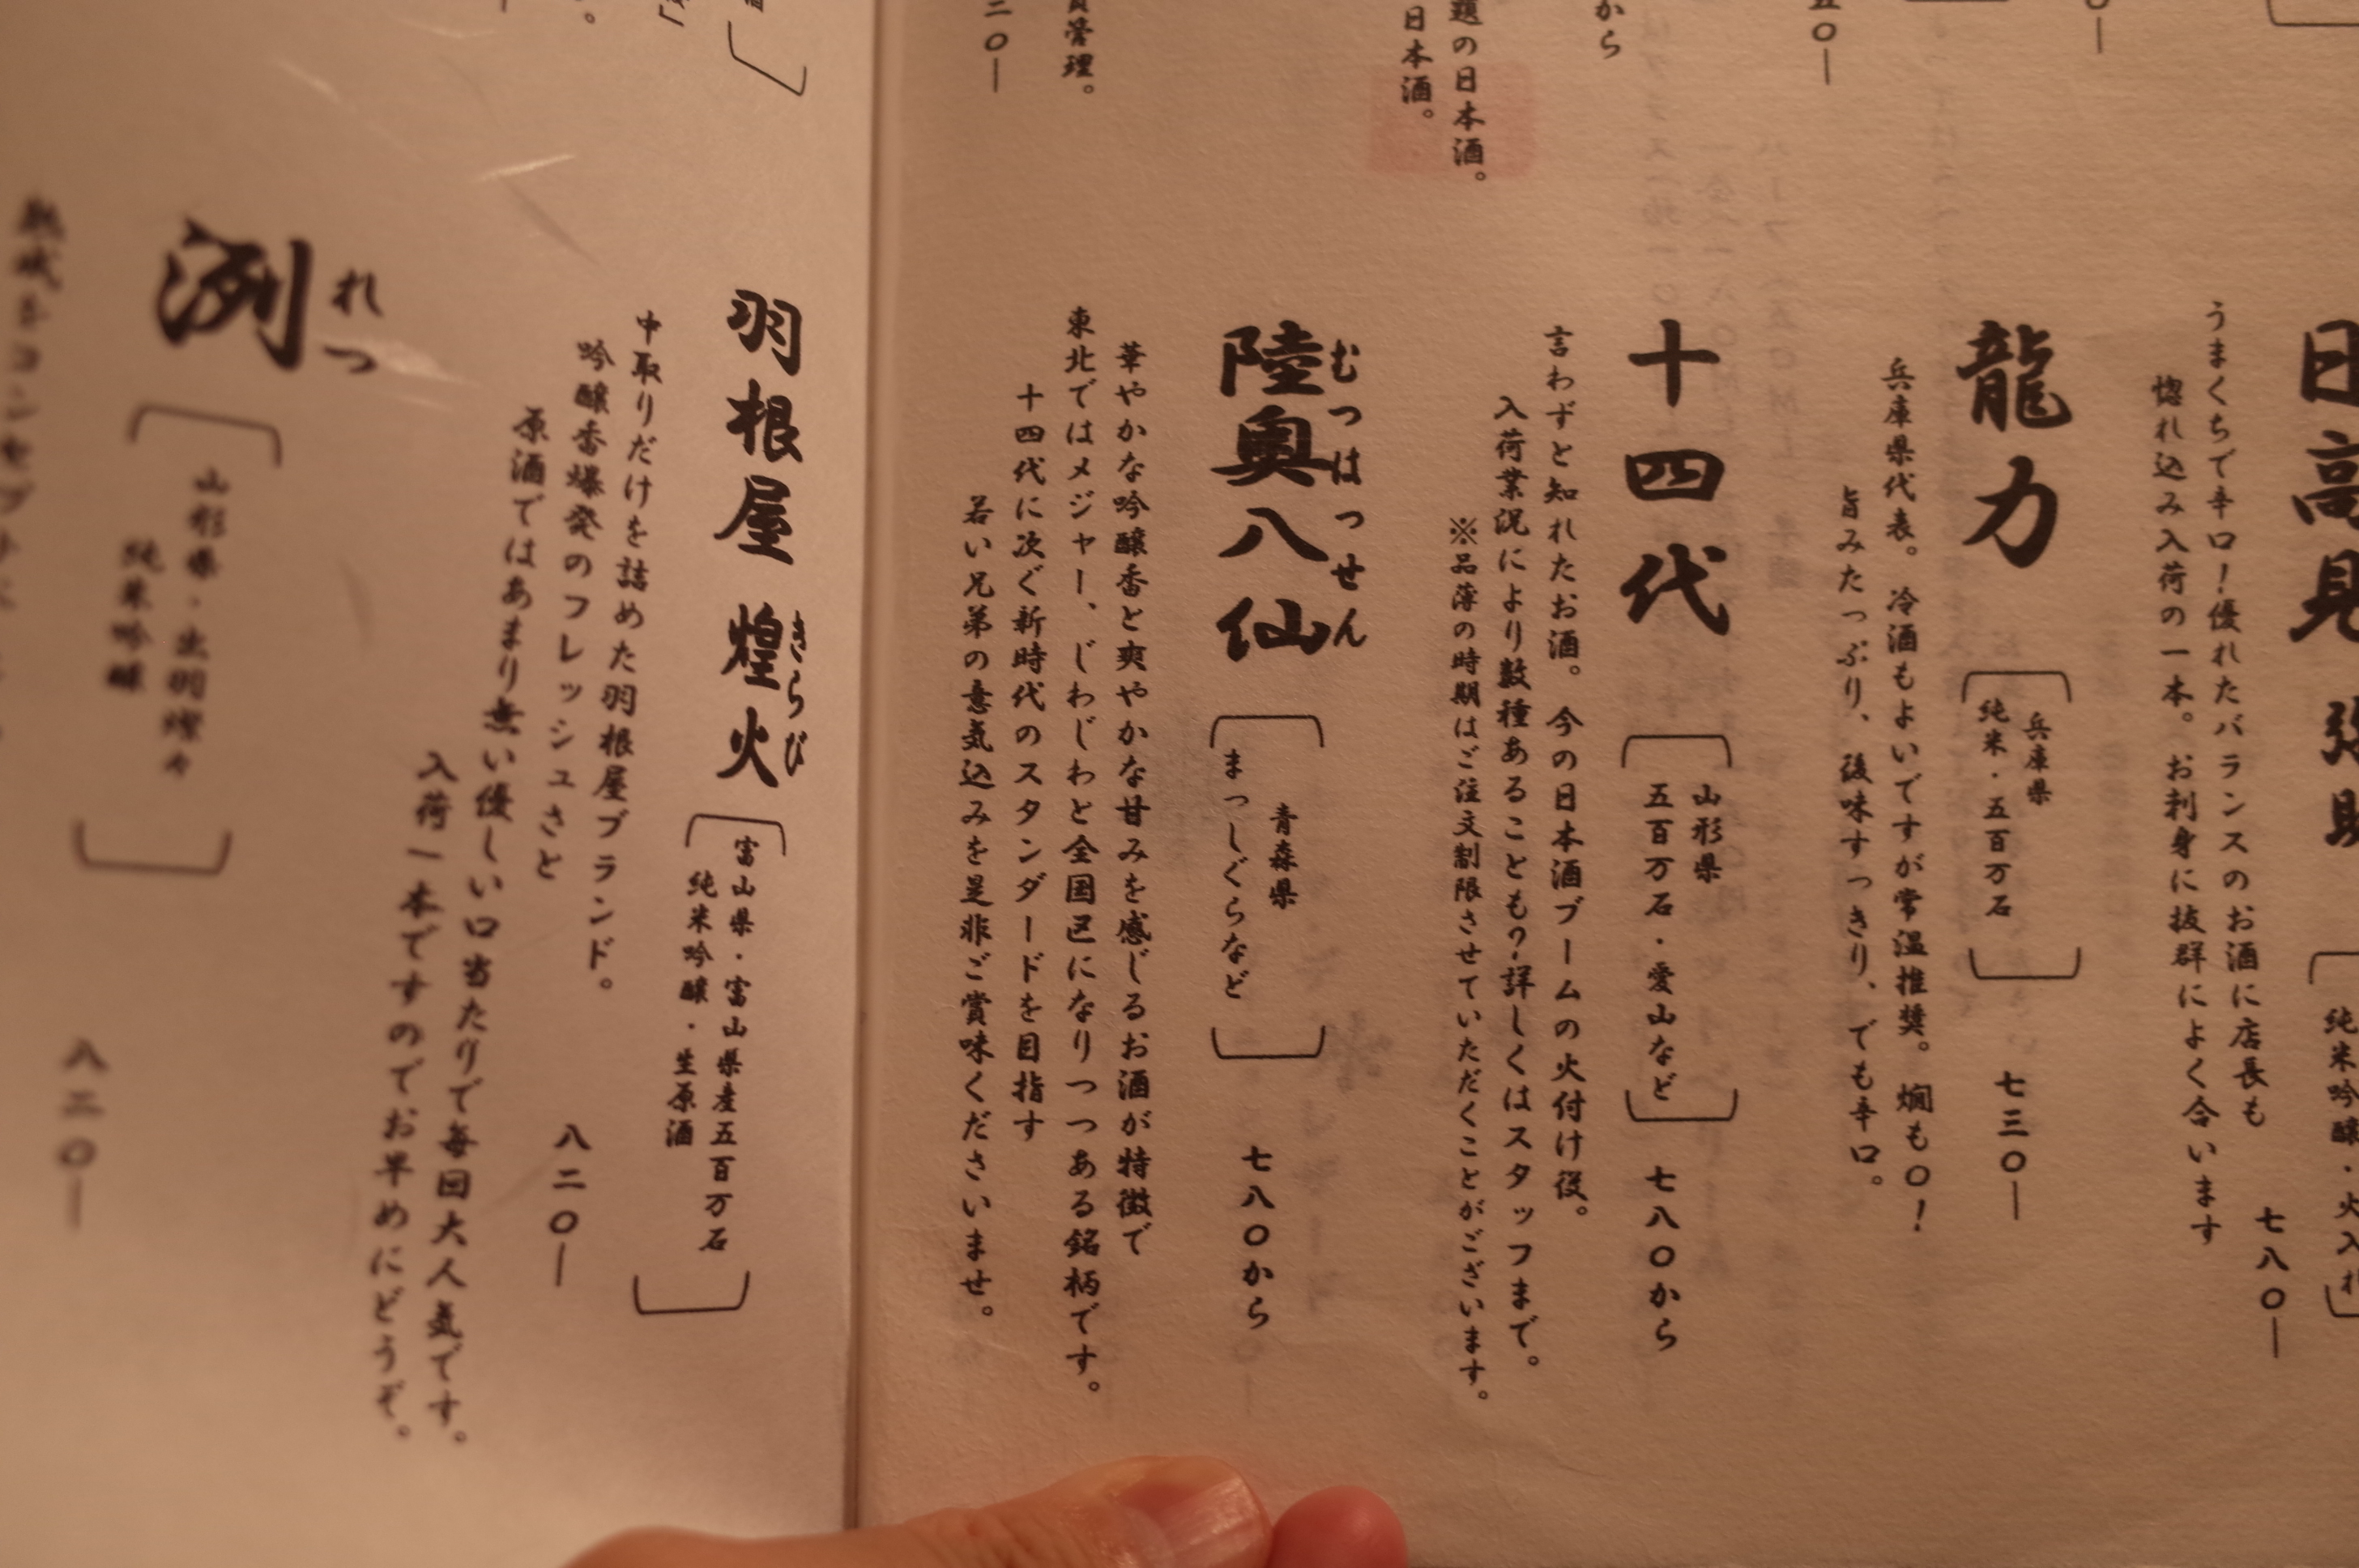 日高見
うまくちで辛口！優れたバランスのお酒に店長も
惚れ込み入荷の一本。お刺身に抜群によく合います
七八〇―
龍力
兵庫県
純米・五百万石
兵庫県代表。冷酒もよいですが常温推奨。燗も〇！
旨みたっぷり、後味すっきり、でも辛口。
七三〇―
十四代
山形県
五百万石・愛山など
言わずと知れたお酒。今の日本酒ブームの火付け役。
入荷業況により数種あることも？詳しくはスタッフまで。
※品薄の時期はご注文制限させていただくことがございます。
七八〇から
むつはっせん
陸奥八仙
青森県
まっしぐらなど
華やかな吟醸香と爽やかな甘みを感じるお酒が特徴で
東北ではメジャー、じわじわと全国区になりつつある銘柄です。
十四代に次ぐ新時代のスタンダードを目指す
若い兄弟の意気込みを是非ご賞味くださいませ。
七八〇から
から
題の日本酒。
日本酒。
管理。
二〇―
羽根屋 煌火
きらび
富山県・富山県産五百万石
純米吟醸・生原酒
中取りだけを詰めた羽根屋ブランド。
吟醸香爆発のフレッシュさと
原酒ではあまり無い優しい口当たりで毎回大人気です。
入荷一本ですのでお早めにどうぞ。
八二〇―
れつ
洌
山形県・出羽燦々
純米吟醸
八二〇―